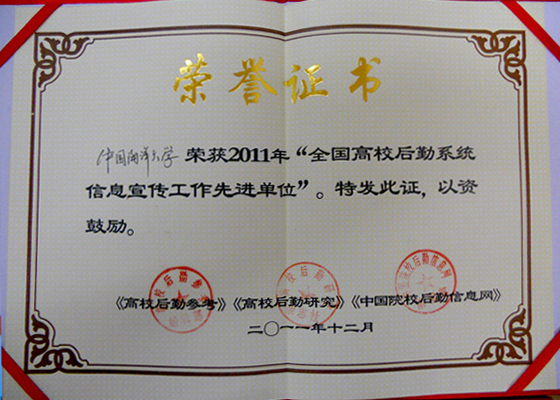 荣誉证书
中国海洋大学 荣获2011年“全国高校后勤系统
信息宣传工作先进单位”。特发此证，以资
鼓励。
《高校后勤参考》《高校后勤研究》《中国院校后勤信息网》
二〇一一年十二月